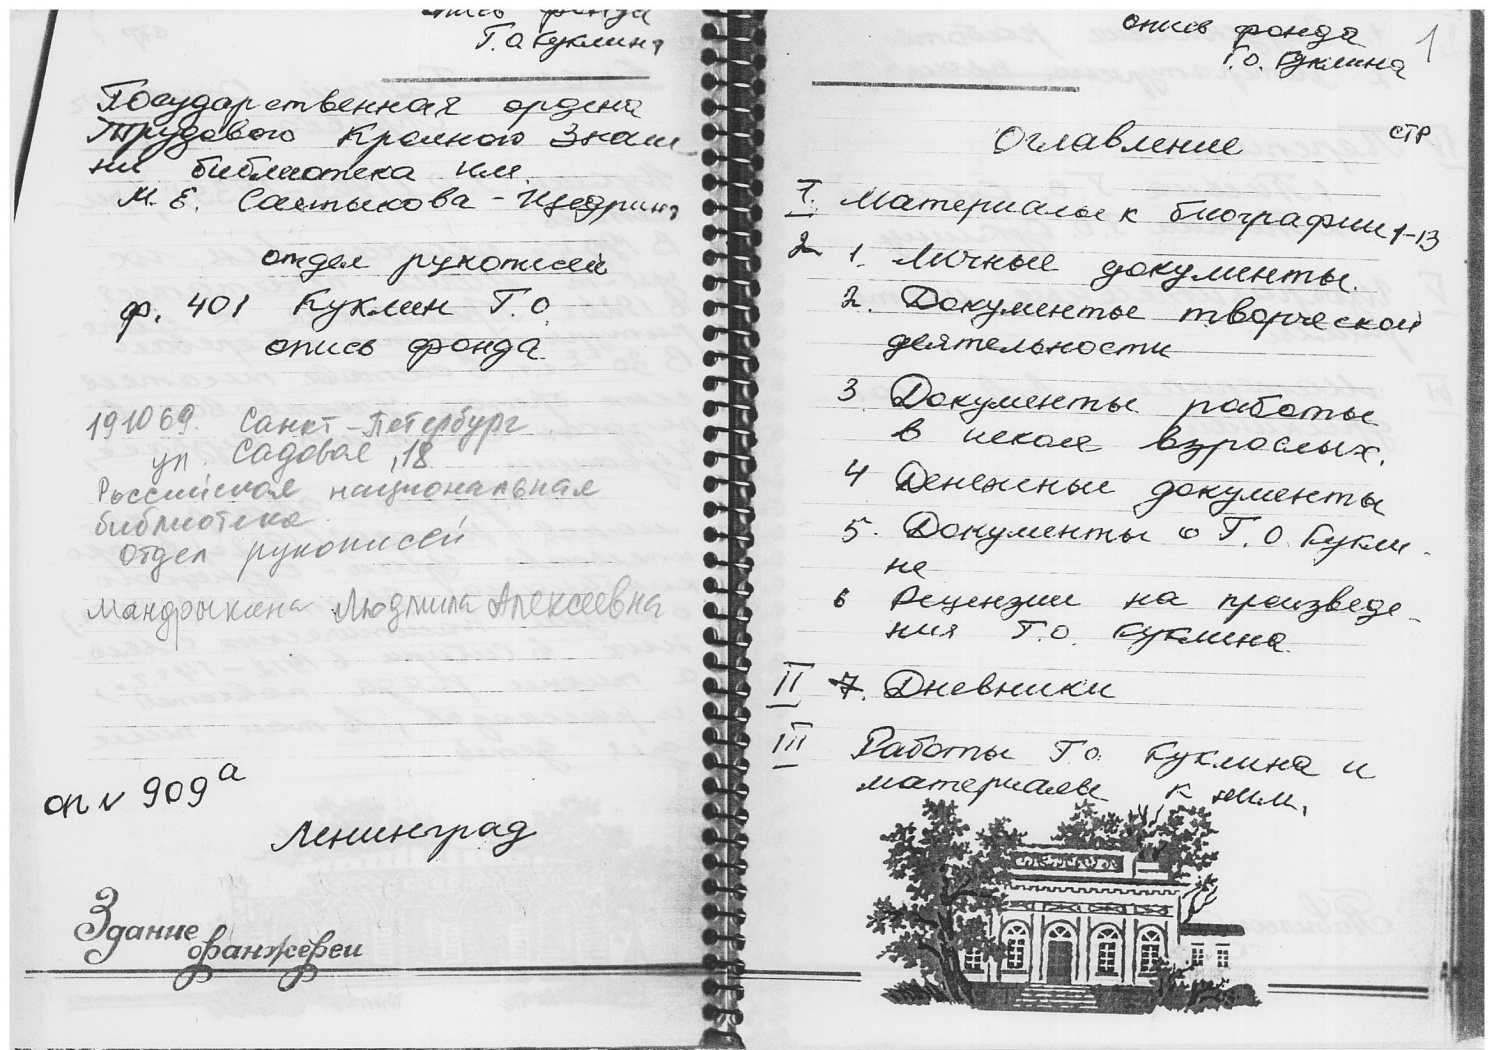 опись фонда
Г.О Куклина
Государственная ордена
Трудового Красного Знаме-
ни библиотека им.
М. Е. Салтыкова-Щедрина
отдел рукописей
ф. 401 Куклин Г.О.
опись фонда
191069. Санкт-Петербург
ул. Садовая, 18
Российская национальная
библиотека
Отдел рукописей
Мандрыкина Людмила Алексеевна
оп N 909а
Ленинград
Здание
оранжереи
опись фонда
Г.О. Куклина
1
Оглавление
стр
I. Материалы к биографии 1-13
2 1. Личные документы.
2. Документы творческой
деятельности
3 Документы работы
в школе взрослых.
4 Денежные документы
5. Документы о Г.О. Кукли-
не
6 Рецензии на произведе-
ния Г.О. Куклина.
II 7. Дневники
III Работы Г.О. Куклина и
материалы к ним.